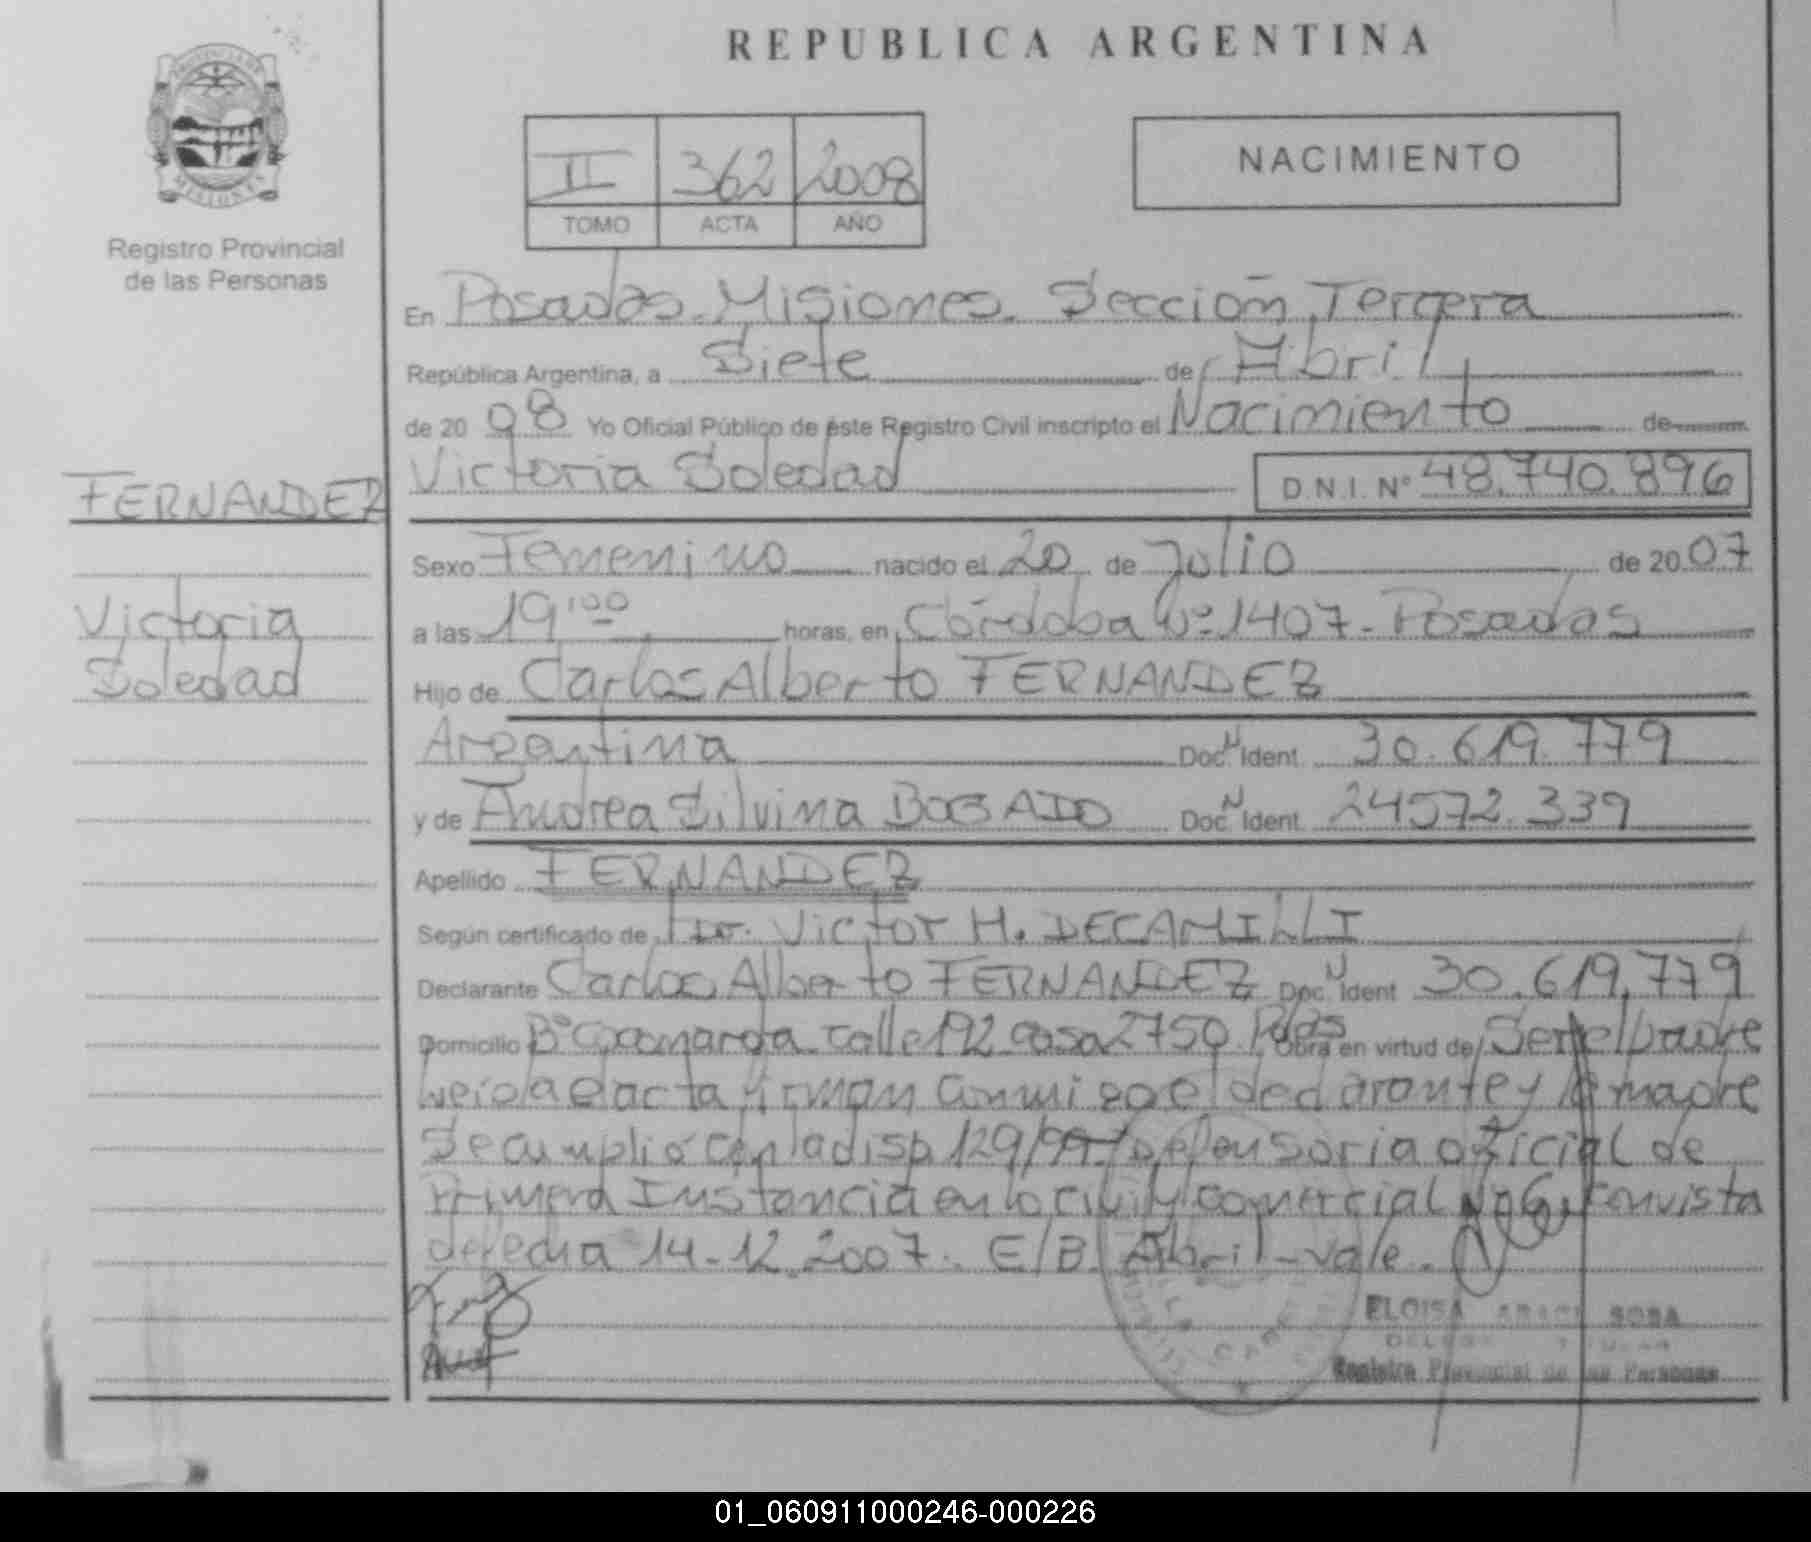 REPUBLICA ARGENTINA
PROVINCIA DE
MISIONES
Registro Provincial
de las Personas
II 362 2008
TOMO ACTA AÑO
NACIMIENTO
En Posadas. Misiones. Sección Tercera
República Argentina, a Siete de Abril
de 20 08 Yo Oficial Público de éste Registro Civil inscripto el Nacimiento de
Victoria Soledad D.N.I. Nº 48.740.896
FERNANDEZ
Victoria
Soledad
Sexo Femenino nacido el 20 de Julio de 20 07
a las 19,00 horas, en Córdoba Nº 1407 - Posadas
Hijo de Carlos Alberto FERNANDEZ
Argentina Doc. N Ident 30.619.779
y de Andrea Silvina BOGADO Doc. N Ident. 24572.339
Apellido FERNANDEZ
Según certificado de Dr. Victor H. DECAMILLI
Declarante Carlos Alberto FERNANDEZ Doc. N Ident 30.619.779
Domicilio Bº Cocomarola calle 192 casa 2750 Pdas Obra en virtud de Ser el padre
Leida el acta firman conmigo el declarante y la madre
Se cumplió con la disp. 129/99 Defensoria oficial de
Primera Instancia en lo civil y comercial Nº 6 con vista
de fecha 14-12-2007. E/B. Abril - vale.
ELOISA SOSA
Registro Provincial de las Personas
01_060911000246-000226